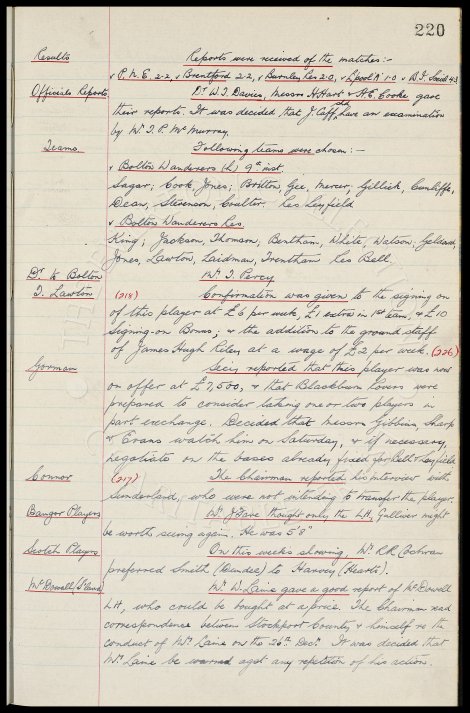 220
Results Reports were received of the matches:-
v P.N.E. 2-2, v Brentford 2-2, v Burnley Res 2-0, v L'pool 'A' 1-0 v B.I. Social 4-3
Officials Reports Dr W.J. Davies, Messrs H. Hart & A.E. Cooke gave
their reports. It was decided that J. Caffrey have an examination
by Mr T.P. McMurray.
Teams Following teams were chosen:-
v Bolton Wanderers (h) 9th inst.
Sagar; Cook, Jones; Britton, Gee, Mercer; Gillick, Cunliffe,
Dean, Stevenson, Coulter. Res Leyfield
v Bolton Wanderers Res.
King; Jackson, Thomson; Bentham, White, Watson; Geldard,
Jones, Lawton, Laidman, Trentham Res Bell.
Dr. to Bolton Mr. J. Percy
T. Lawton (218) Confirmation was given to the signing on
of this player at £6 per week, £1 extra in 1st team, & £10
signing-on Bonus; & the addition to the ground staff
of James Hugh Kelly at a wage of £2 per week. (226)
Gorman Secy reported that this player was now
on offer at £7,500, & that Blackburn Rovers were
prepared to consider taking one or two players in
part exchange. Decided that Messrs Gibbins, Sharp
& Evans watch him on Saturday, & if necessary,
negotiate on the bases already fixed for Bell & Leyfield.
Connor (217) The Chairman reported his interview with
Sunderland, who were not intending to transfer the player.
Bangor Players Mr. J. Fare thought only the LH, Gulliver might
be worth seeing again. He was 5'8"
Scotch Players On this weeks showing, Mr. R.R. Cochran
preferred Smith (Dundee) to Harvey (Hearts).
McDowell Mr. W. Laine gave a good report of McDowell
LH, who could be bought at a price. The Chairman read
correspondence between Stockport County & himself re the
conduct of Mr. Laine on the 26th Decr. It was decided that
Mr. Laine be warned agst any repetition of his action.